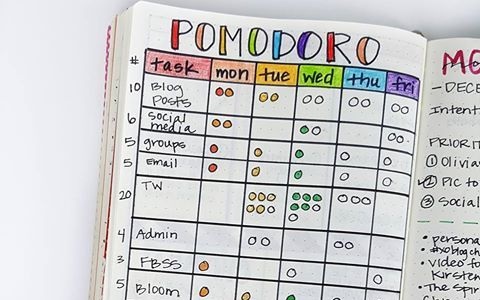 POMODORO
# task mon tue wed thu fri
10 Blog Posts
6 social media
5 groups
5 Email
20 TW
4 Admin
3 FBSS
5 Bloom
MO
- DECE
Intent
PRIORIT
① Olivia
② Pic to
③ Social
• persona
• #xoblogch
• video fo
Kirsten
• The Spir